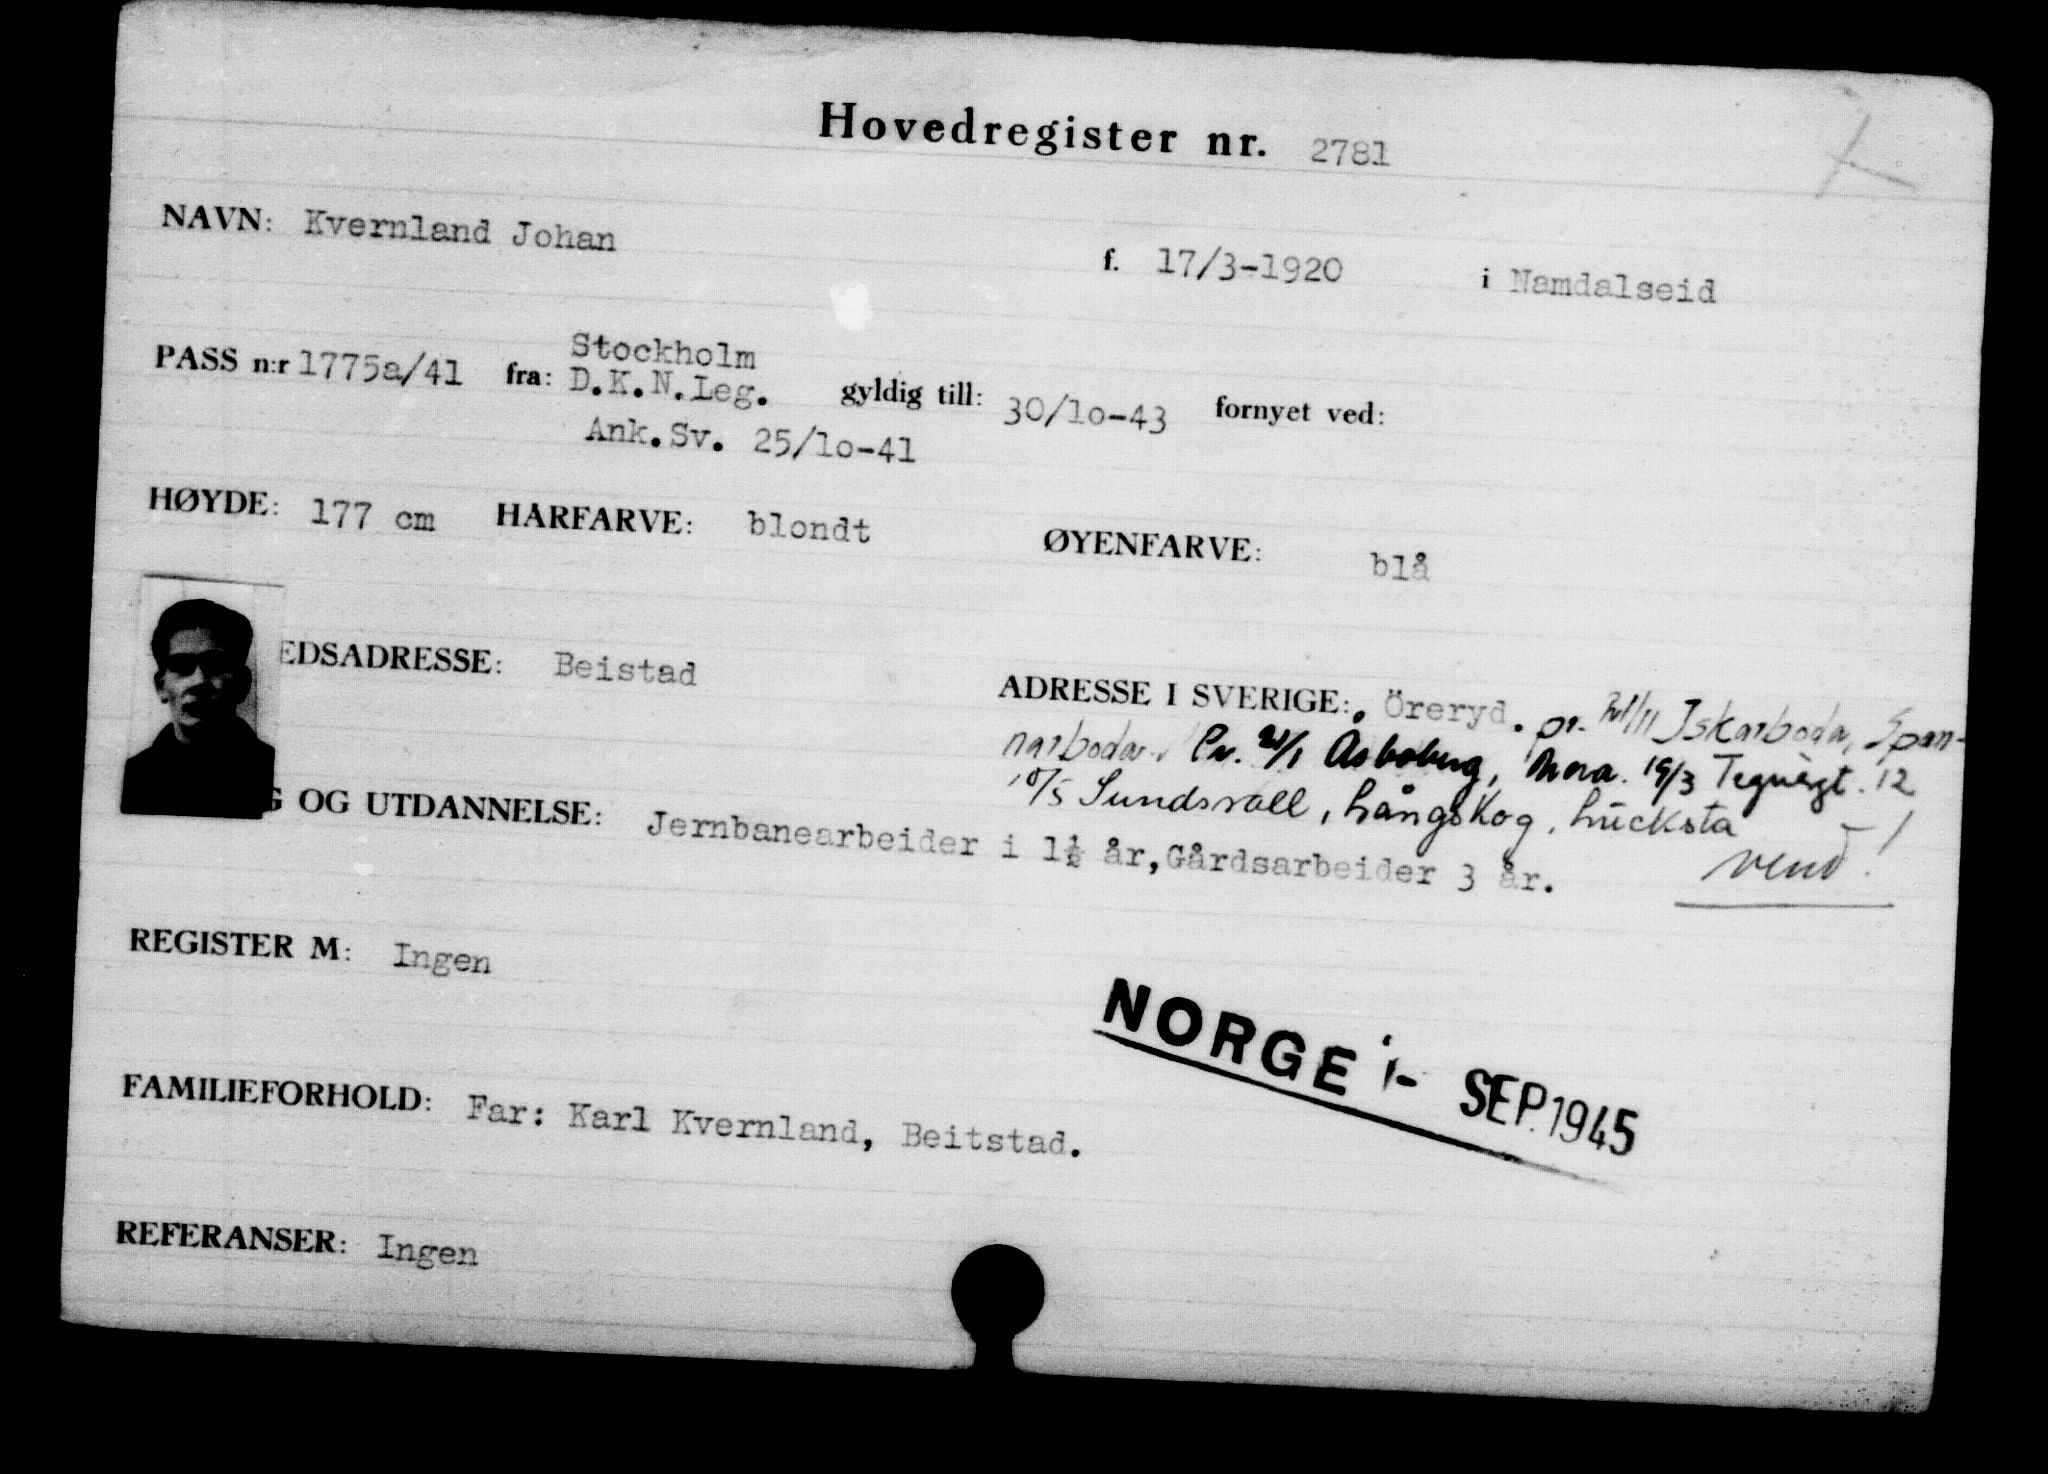 Hovedregister nr. 2781
NAVN: Kvernland Johan f. 17/3-1920 i Namdalseid
Stockholm
PASS n:r 1775a/41 fra: D.K.N.Leg. gyldig till: 30/lo-43 fornyet ved:
Ank.Sv. 25/lo-41
HØYDE: 177 cm HARFARVE: blondt ØYENFARVE: blå
EDSADRESSE: Beistad ADRESSE I SVERIGE: Öreryd. pr. Iskarboda, Span-
narboda. Pr. 21/1 Mora. 19/3 12
10/5 Sundsvall, Långskog,
G OG UTDANNELSE: Jernbanearbeider i 1½ år, Gårdsarbeider 3 år.
vend!
REGISTER M: Ingen
NORGE 1- SEP. 1945
FAMILIEFORHOLD: Far: Karl Kvernland, Beitstad.
REFERANSER: Ingen